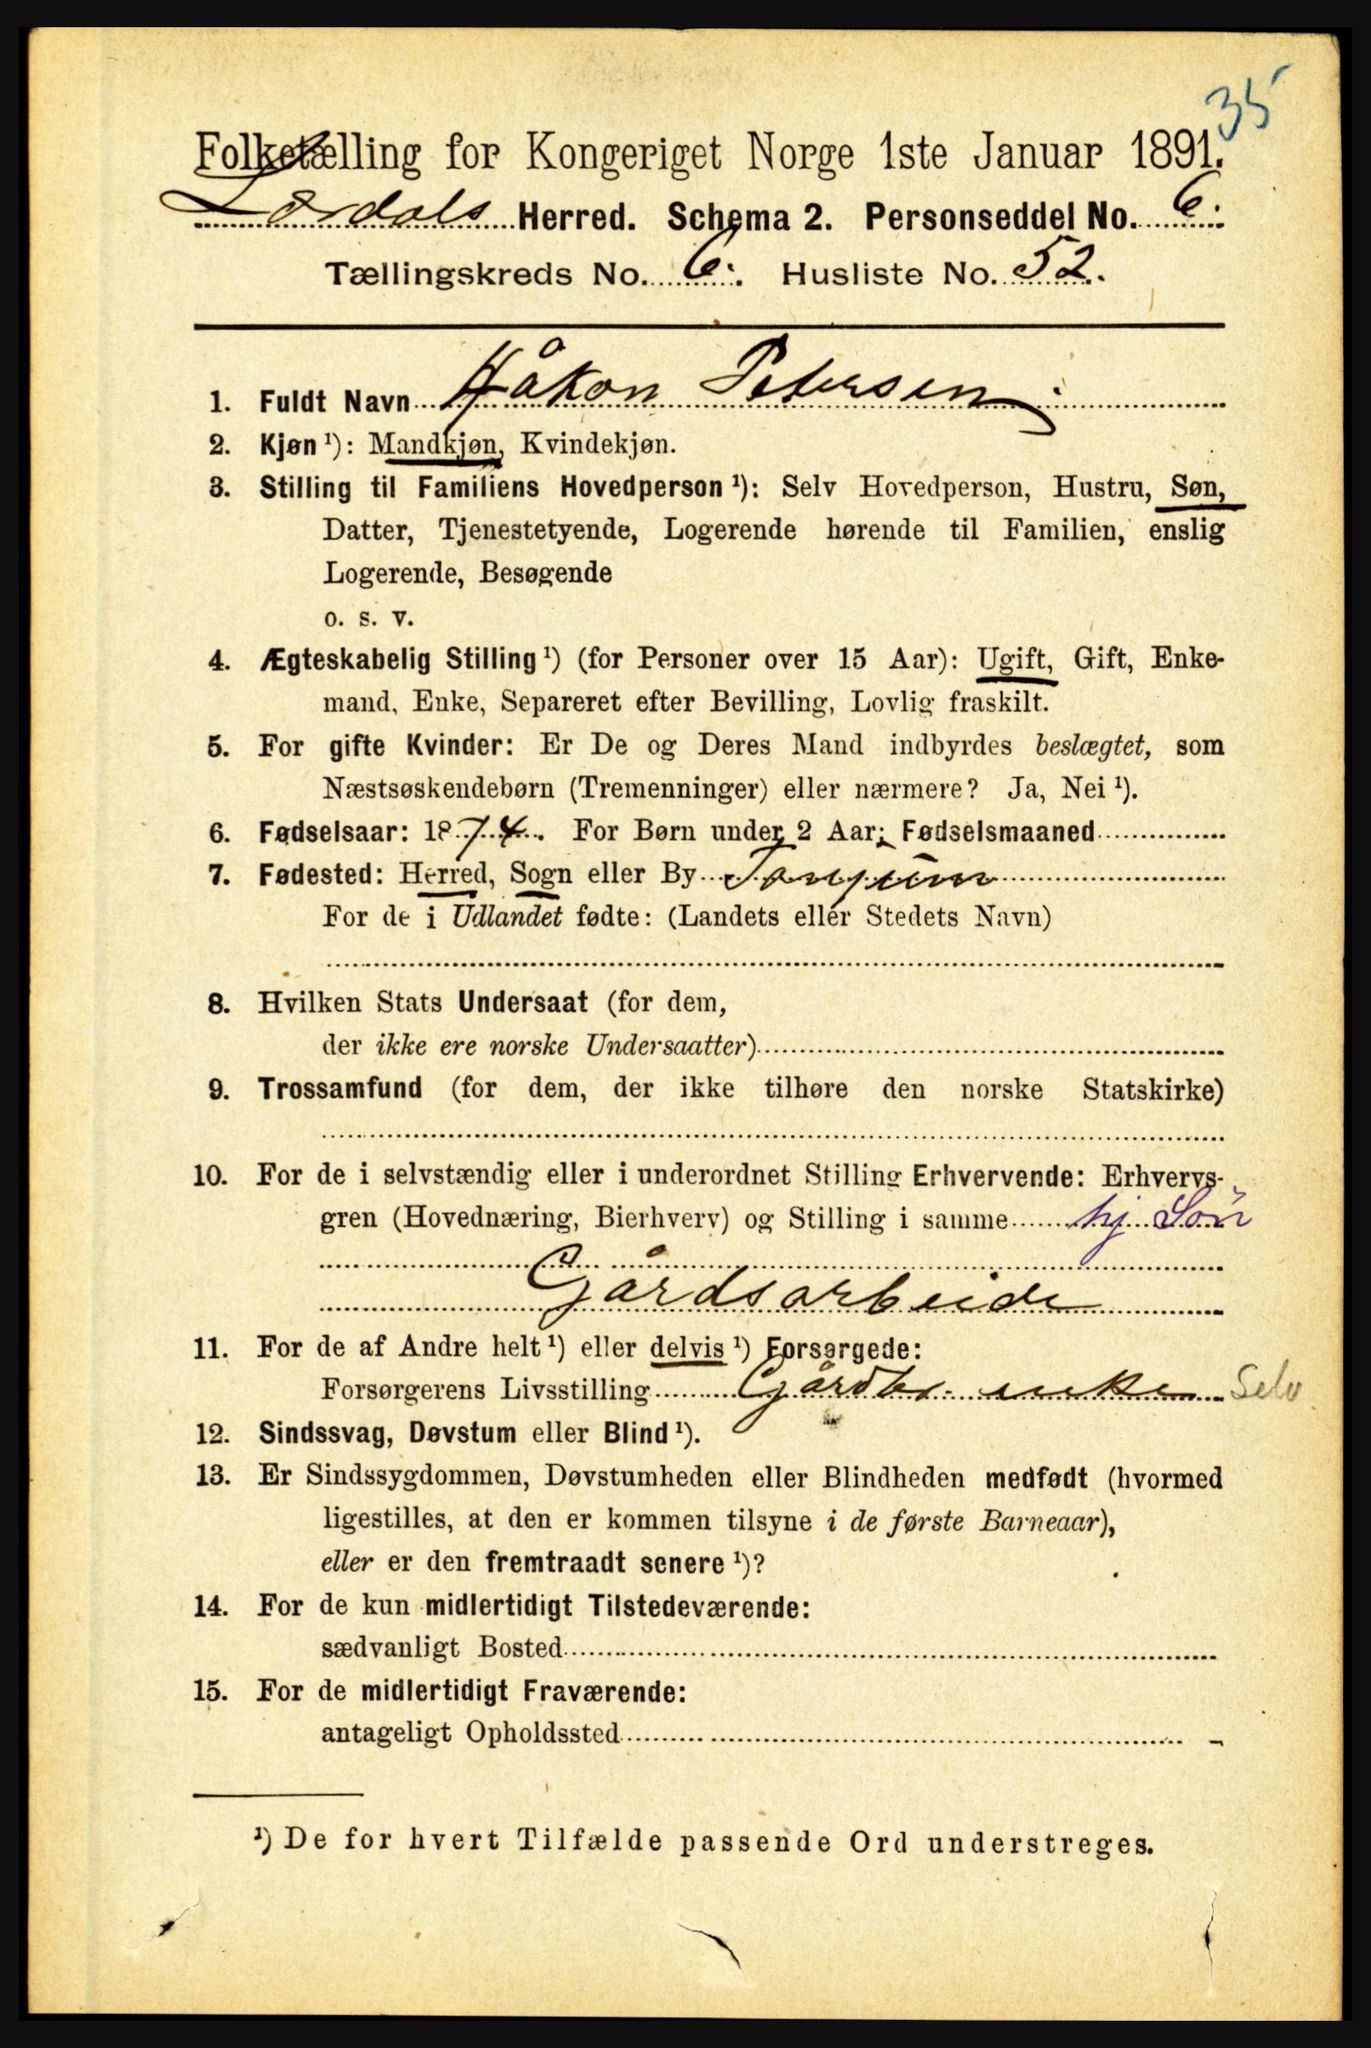 35
Folketælling for Kongeriget Norge 1ste Januar 1891.
Lærdals Herred. Schema 2. Personseddel No. 6.
Tællingskreds No. 6. Husliste No. 52.
1. Fuldt Navn Håkon Petersen
2. Kjøn ¹): Mandkjøn, Kvindekjøn.
3. Stilling til Familiens Hovedperson ¹): Selv Hovedperson, Hustru, Søn,
Datter, Tjenestetyende, Logerende hørende til Familien, enslig
Logerende, Besøgende
o. s. v.
4. Ægteskabelig Stilling ¹) (for Personer over 15 Aar): Ugift, Gift, Enke-
mand, Enke, Separeret efter Bevilling, Lovlig fraskilt.
5. For gifte Kvinder: Er De og Deres Mand indbyrdes beslægtet, som
Næstsøskendebørn (Tremenninger) eller nærmere? Ja, Nei ¹).
6. Fødselsaar: 1874. For Børn under 2 Aar: Fødselsmaaned
7. Fødested: Herred, Sogn eller By Tonjum
For de i Udlandet fødte: (Landets eller Stedets Navn)
8. Hvilken Stats Undersaat (for dem,
der ikke ere norske Undersaatter)
9. Trossamfund (for dem, der ikke tilhøre den norske Statskirke)
10. For de i selvstændig eller i underordnet Stilling Erhvervende: Erhvervs-
gren (Hovednæring, Bierhverv) og Stilling i samme hj. Søn
Gårdsarbeide
11. For de af Andre helt ¹) eller delvis ¹) Forsørgede:
Forsørgerens Livsstilling Gårdbr. enke Selv
12. Sindssvag, Døvstum eller Blind ¹).
13. Er Sindssygdommen, Døvstumheden eller Blindheden medfødt (hvormed
ligestilles, at den er kommen tilsyne i de første Barneaar),
eller er den fremtraadt senere ¹)?
14. For de kun midlertidigt Tilstedeværende:
sædvanligt Bosted
15. For de midlertidigt Fraværende:
antageligt Opholdssted
¹) De for hvert Tilfælde passende Ord understreges.